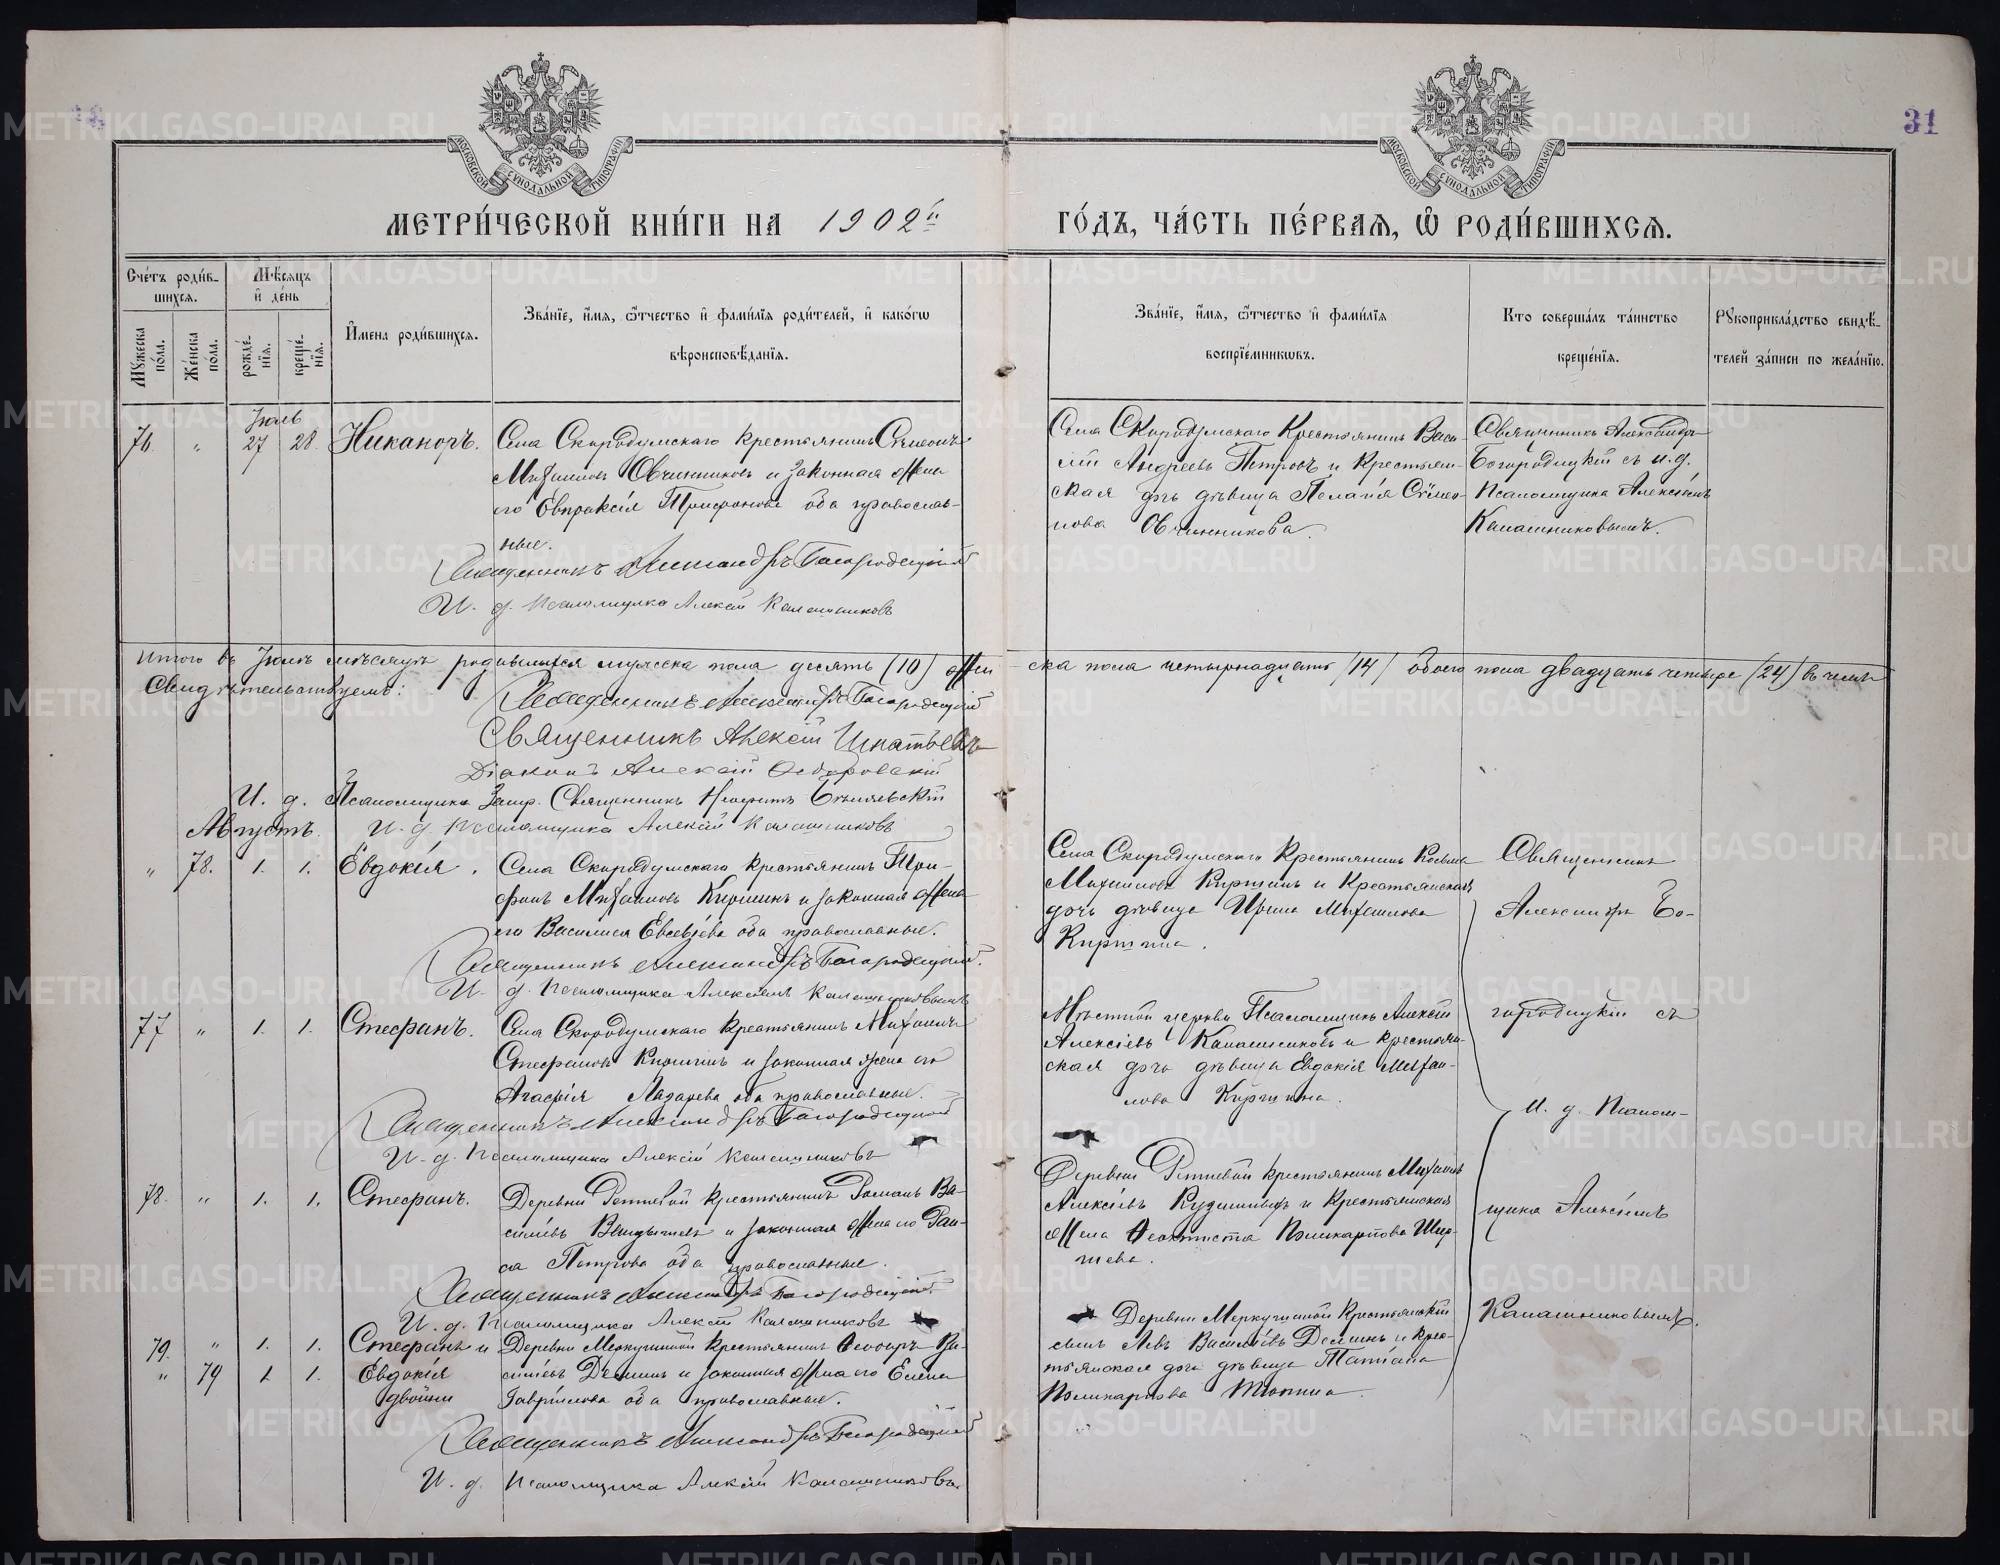 31
МОСКОВСКОЙ СѴНОДАЛЬНОЙ ТИПОГРАФІИ
МОСКОВСКОЙ СѴНОДАЛЬНОЙ ТИПОГРАФІИ
МЕТРИ́ЧЕСКОЙ КНИ́ГИ НА 1902й
ГО́ДЪ, ЧА́СТЬ ПЕ́РВАЯ, Ѡ РОДИ́ВШИХСЯ.
Сче́тъ роди́в-
шихся.
Мѣ́сяцъ
и҆ де́нь
Мꙋ́жеска по́ла.
Же́нска по́ла.
рожде́-
нїѧ.
креще́-
нїѧ.
И҆мена роди́вшихся.
Зва́нїе, и҆́мѧ, ѻ҆́тчество и҆ фами́лїѧ роди́телей, и҆ како́гѡ
вѣроисповѣ́данїѧ.
Зва́нїе, и҆́мѧ, ѻ҆́тчество и҆ фами́лїѧ
воспрїе́мникѡвъ.
Кто соверша́лъ та́инство
креще́нїѧ.
Рꙋкоприкла́дство свидѣ́-
телей за́писи по жела́нїю.
Іюль
76. " 27 28. Никаноръ.
Села Скородумскаго крестьянинъ Сѵмеонъ
Михаиловъ Овчинниковъ и законная жена
его Евпраксія Трифонова оба православ-
ные.
Священникъ Александръ Богородицкій
И. д. псаломщика Алексій Калашниковъ
Села Скородумскаго Крестьянинъ Васи-
лій Андреевъ Петровъ и Крестьян-
ская дочь дѣвица Пелагія Сѵмео-
нова Овчинникова.
Священникъ Александръ
Богородицкій съ и. д.
Псаломщика Алексіемъ
Калашниковымъ.
Итого въ Іюлѣ мѣсяцѣ родившихся мужеска пола десять (10) жен-
ска пола четырнадцать (14) обоего пола двадцать четыре (24) въ чемъ
Свидѣтельствуемъ:
Священникъ Александръ Богородицкій
Священникъ Алексій Игнатьевъ
Діаконъ Алексій
И. д. Псаломщика Священникъ
И. д. псаломщика Алексій Калашниковъ
Августъ.
" 78. 1. 1. Евдокія.
Села Скородумскаго крестьянинъ Три-
фонъ Михаиловъ Киршинъ и законная жена
его Василиса Евсевіева оба православные.
Священникъ Александръ Богородицкій.
И. д. псаломщика Алексіемъ Калашниковымъ
Села Скородумскаго Крестьянинъ Косьма
Михаиловъ Киршинъ и Крестьянская
дочь дѣвица Ирина Михаилова
Киршина.
Священникъ
Александръ Бо-
77 " 1. 1. Стефанъ.
Села Скородумскаго Крестьянинъ Михаилъ
Стефановъ Киршинъ и законная жена его
Агафія Лазарева оба православные.
Священникъ Александръ Богородицкій
И. д. псаломщика Алексій Калашниковъ
Мѣстной церкви Псаломщикъ Алексій
Алексіевъ Калашниковъ и крестьян-
ская дочь дѣвица Евдокія Михаи-
лова Киршина.
городицкій съ
И. д. Псалом-
78. " 1. 1. Стефанъ.
Деревни Ретневой крестьянинъ Романъ Ва-
силіевъ и законная жена его Раи-
са Петрова оба православные.
Священникъ Александръ Богородицкій.
И. д. Псаломщика Алексій Калашниковъ
Деревни Ретневой крестьянинъ Михаилъ
Алексіевъ и Крестьянская
жена Ѳеоктиста Поликарпова
щика Алексіемъ
79. " 1. 1. Стефанъ и
" 79 1. 1. Евдокія
двойни
Деревни Меркушиной крестьянинъ Ѳеодоръ Ва-
силіевъ Деминъ и законная жена его Елена
Гавріилова оба православные.
Священникъ Александръ Богородицкій
И. д. Псаломщика Алексій Калашниковъ.
Деревни Меркушиной Крестьянскій
сынъ Левъ Василіевъ Деминъ и крес-
тьянская дочь дѣвица Татіана
Поликарпова
Калашниковымъ.